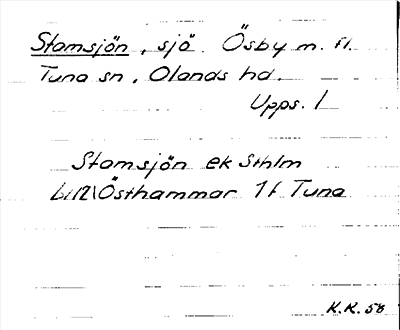 Stamsjön, sjö. Ösby m. fl.
Tuna sn, Olands hd.
Upps. l
Stamsjön ek Sthlm
Östhammar 1f Tuna
K.K. 58